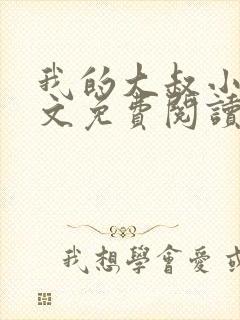 我的大叔小
文免費閱讀
我想學會愛或